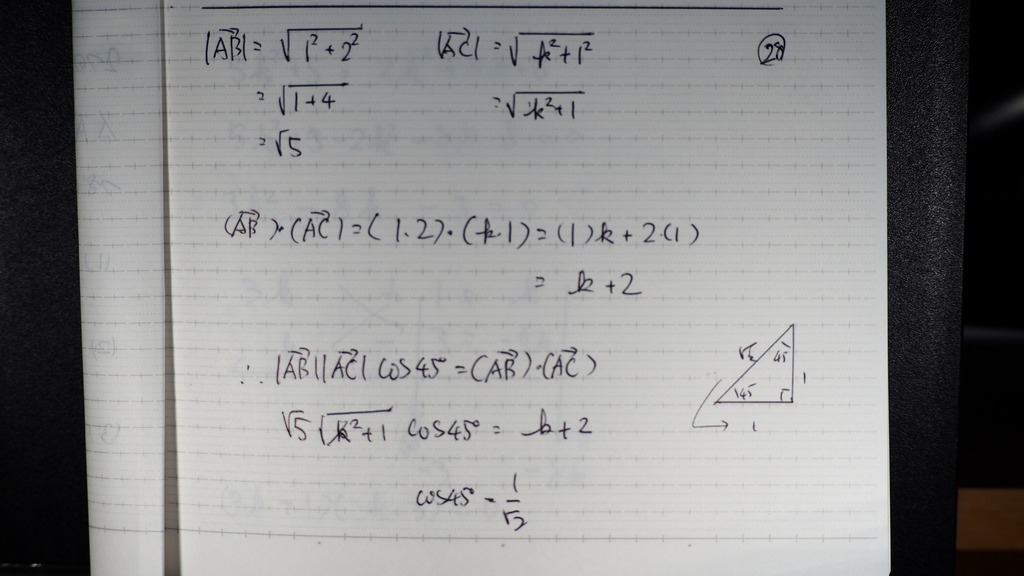 |AB→| = √1²+2² |AC→| = √k²+1² 28
= √1+4 = √k²+1
= √5
(AB→)·(AC→) = (1.2)·(k.1) = (1)k + 2.(1)
= k+2
∴ |AB→||AC→| cos45° = (AB→)·(AC→)
√5 √k²+1 cos45° = k+2
cos45° = 1/√2
√2 45°
45° 1
1